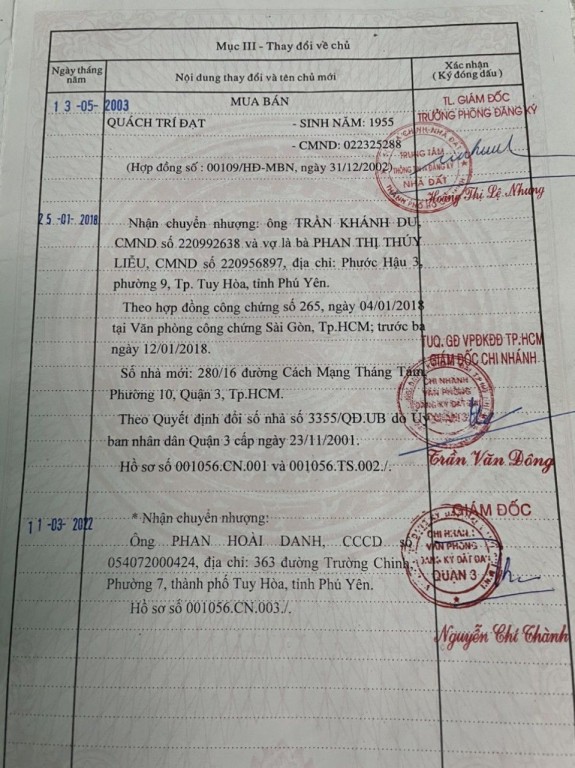 Mục III - Thay đổi về chủ
Ngày tháng năm
Nội dung thay đổi và tên chủ mới
Xác nhận
(Ký đóng dấu)
13-05-2003
MUA BÁN
QUÁCH TRÍ ĐẠT - SINH NĂM: 1955
- CMND: 022325288
(Hợp đồng số : 00109/HĐ-MBN, ngày 31/12/2002)
TL. GIÁM ĐỐC
TRƯỞNG PHÒNG ĐĂNG KÝ
TRUNG TÂM
THÔNG TIN ĐĂNG KÝ
NHÀ ĐẤT
Hoàng Thị Lệ Nhung
25-01-2018
Nhận chuyển nhượng: ông TRẦN KHÁNH DƯ,
CMND số 220992638 và vợ là bà PHAN THỊ THÚY
LIỄU, CMND số 220956897, địa chỉ: Phước Hậu 3,
phường 9, Tp. Tuy Hòa, tỉnh Phú Yên.
Theo hợp đồng công chứng số 265, ngày 04/01/2018
tại Văn phòng công chứng Sài Gòn, Tp.HCM; trước bạ
ngày 12/01/2018.
Số nhà mới: 280/16 đường Cách Mạng Tháng Tám,
Phường 10, Quận 3, Tp.HCM.
Theo Quyết định đổi số nhà số 3355/QĐ.UB do Ủy
ban nhân dân Quận 3 cấp ngày 23/11/2001.
Hồ sơ số 001056.CN.001 và 001056.TS.002./.
TUQ. GĐ VPĐKĐĐ TP.HCM
GIÁM ĐỐC CHI NHÁNH
CHI NHÁNH
VĂN PHÒNG
ĐĂNG KÝ ĐẤT ĐAI
QUẬN 3
Trần Văn Đông
11-03-2022
* Nhận chuyển nhượng:
Ông PHAN HOÀI DANH, CCCD số
054072000424, địa chỉ: 363 đường Trường Chinh,
Phường 7, thành phố Tuy Hòa, tỉnh Phú Yên.
Hồ sơ số 001056.CN.003./.
GIÁM ĐỐC
CHI NHÁNH
VĂN PHÒNG
ĐĂNG KÝ ĐẤT ĐAI
QUẬN 3
Nguyễn Chí Thành